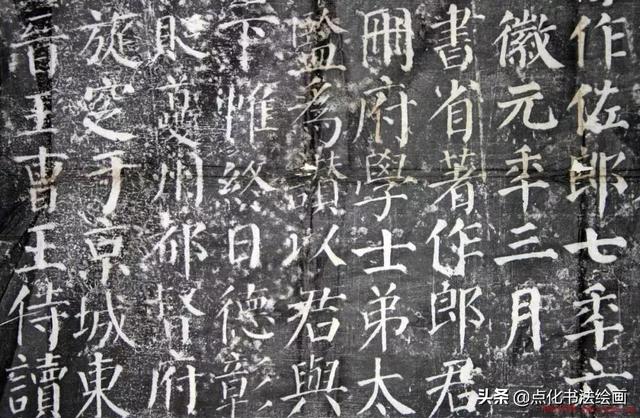 作佐郎七年六
徽元年三月
書省著作郎君
冊府學士弟太
監為讚以君與
下帷終日德彰
則夔州都督府
旋窆于京城東
晉王曹王侍讀
头条 @点化书法绘画